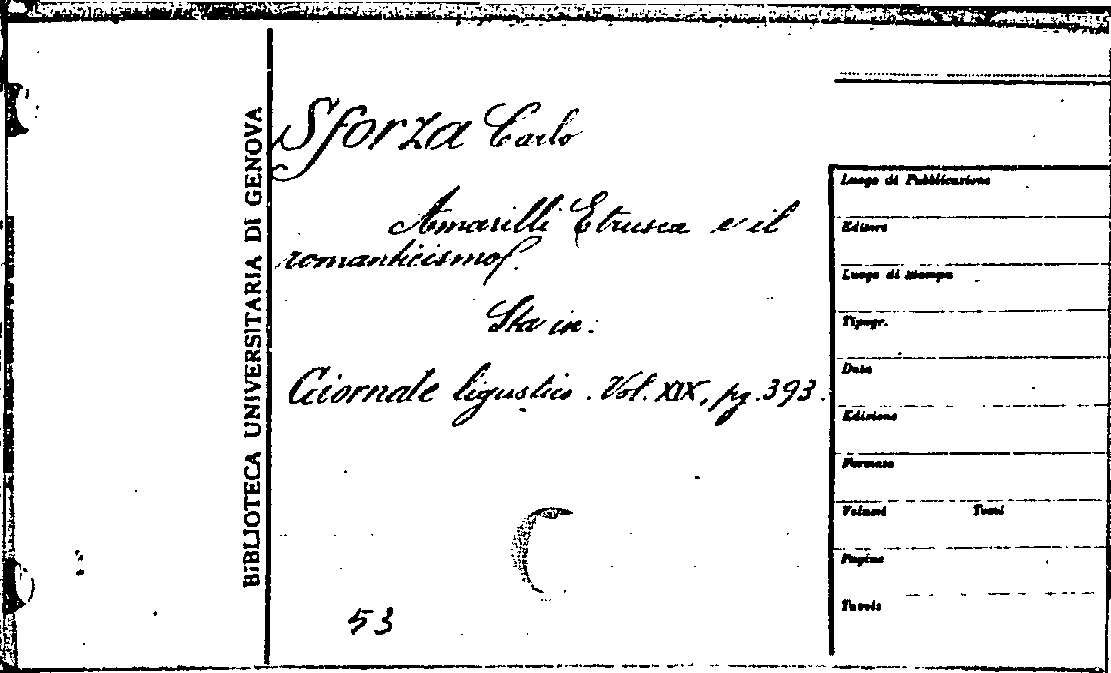 BIBLIOTECA UNIVERSITARIA DI GENOVA
Sforza Carlo
Amarilli Etrusca e il
romanticismo.
Sta in:
Giornale ligustico. Vol. XIX, pg. 393.
53
Luogo di Pubblicazione
Editore
Luogo di stampa
Tipogr.
Data
Edizione
Formato
Volumi Tomi
Pagine
Tavole